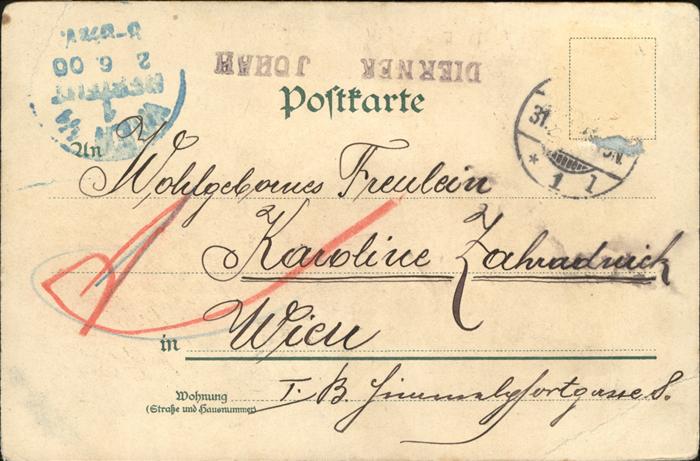 DIERNER JOHAN
Postkarte
2. 6. 00
An
Wohlgebornes Freulein
Karoline Zahradnick
in Wien
Wohnung I. B. Himmelpfortgasse 8.
(Straße und Hausnummer)
31.
* 1 l